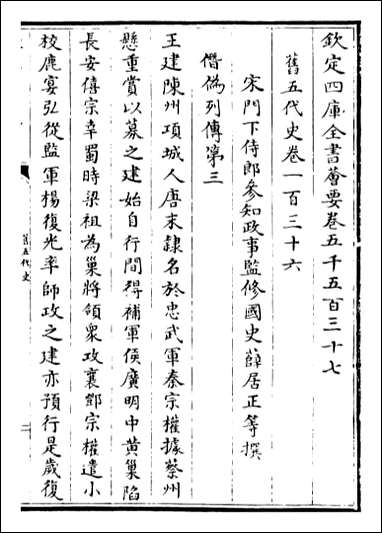 欽定四庫全書薈要卷五千五百三十七
舊五代史卷一百三十六
宋門下侍郎參知政事監修國史薛居正等撰
僭偽列傳第三
王建陳州項城人唐末隷名於忠武軍秦宗權據蔡州
懸重賞以募之建始自行間得補軍候廣明中黄巢陷
長安僖宗幸蜀時梁祖為巢將領衆攻襄鄧宗權遣小
校鹿宴弘從監軍楊復光率師攻之建亦預行是歲復
舊五代史